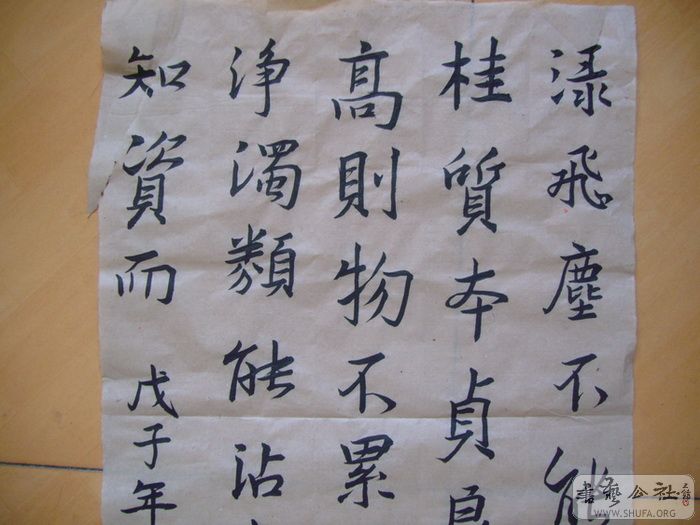 渌飛塵不能
桂質本貞
髙則物不累
淨濁類能沾
知資而 戊子年
書藝公社
WWW.SHUFA.ORG